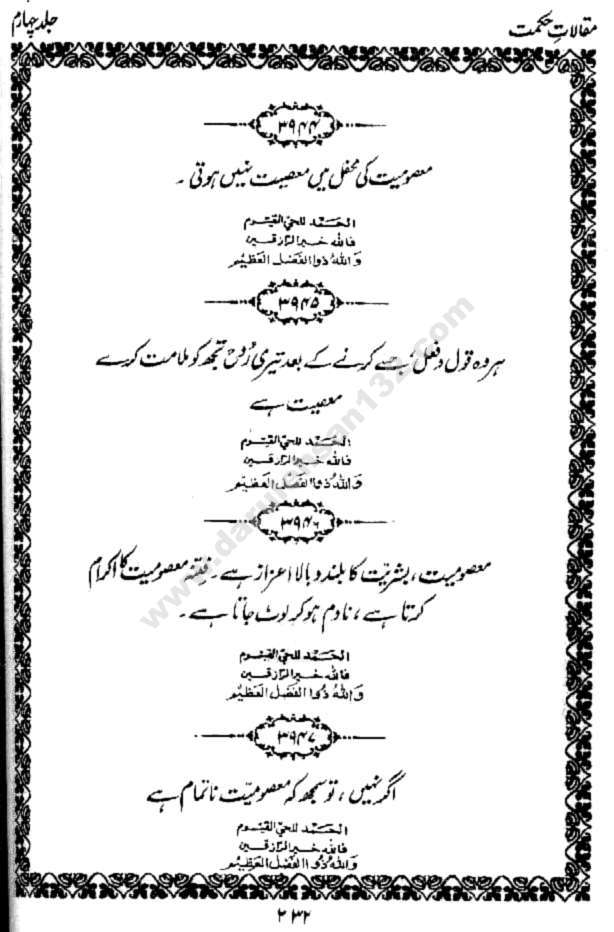 مقالاتِ حکمت
جلد چہارم
۳۹۴۴
معصومیت کی محفل میں معصیت نہیں ہوتی ۔
الحَمد للحيّ القيّوم
فالله خير الرّازقين
وَاللهُ ذُوا الفَضل العَظيم
۳۹۴۵
ہر وہ قول و فعل، جسے کرنے کے بعد تیری رُوح تجھ کو ملامت کرے
معصیت ہے
الحَمد للحيّ القيّوم
فالله خير الرّازقين
وَاللهُ ذُوا الفَضل العَظيم
۳۹۴۶
معصومیت، بشریّت کا بلند و بالا اعزاز ہے ۔ فِتنہ معصومیت کا اکرام
کرتا ہے، نادم ہو کر لوٹ جاتا ہے ۔
الحَمد للحيّ القيّوم
فالله خير الرّازقين
وَاللهُ ذُوا الفَضل العَظيم
۳۹۴۷
اگر نہیں، تو سمجھ کہ معصومیّت ناتمام ہے
الحَمد للحيّ القيّوم
فالله خير الرّازقين
وَاللهُ ذُوا الفَضل العَظيم
۲۳۲